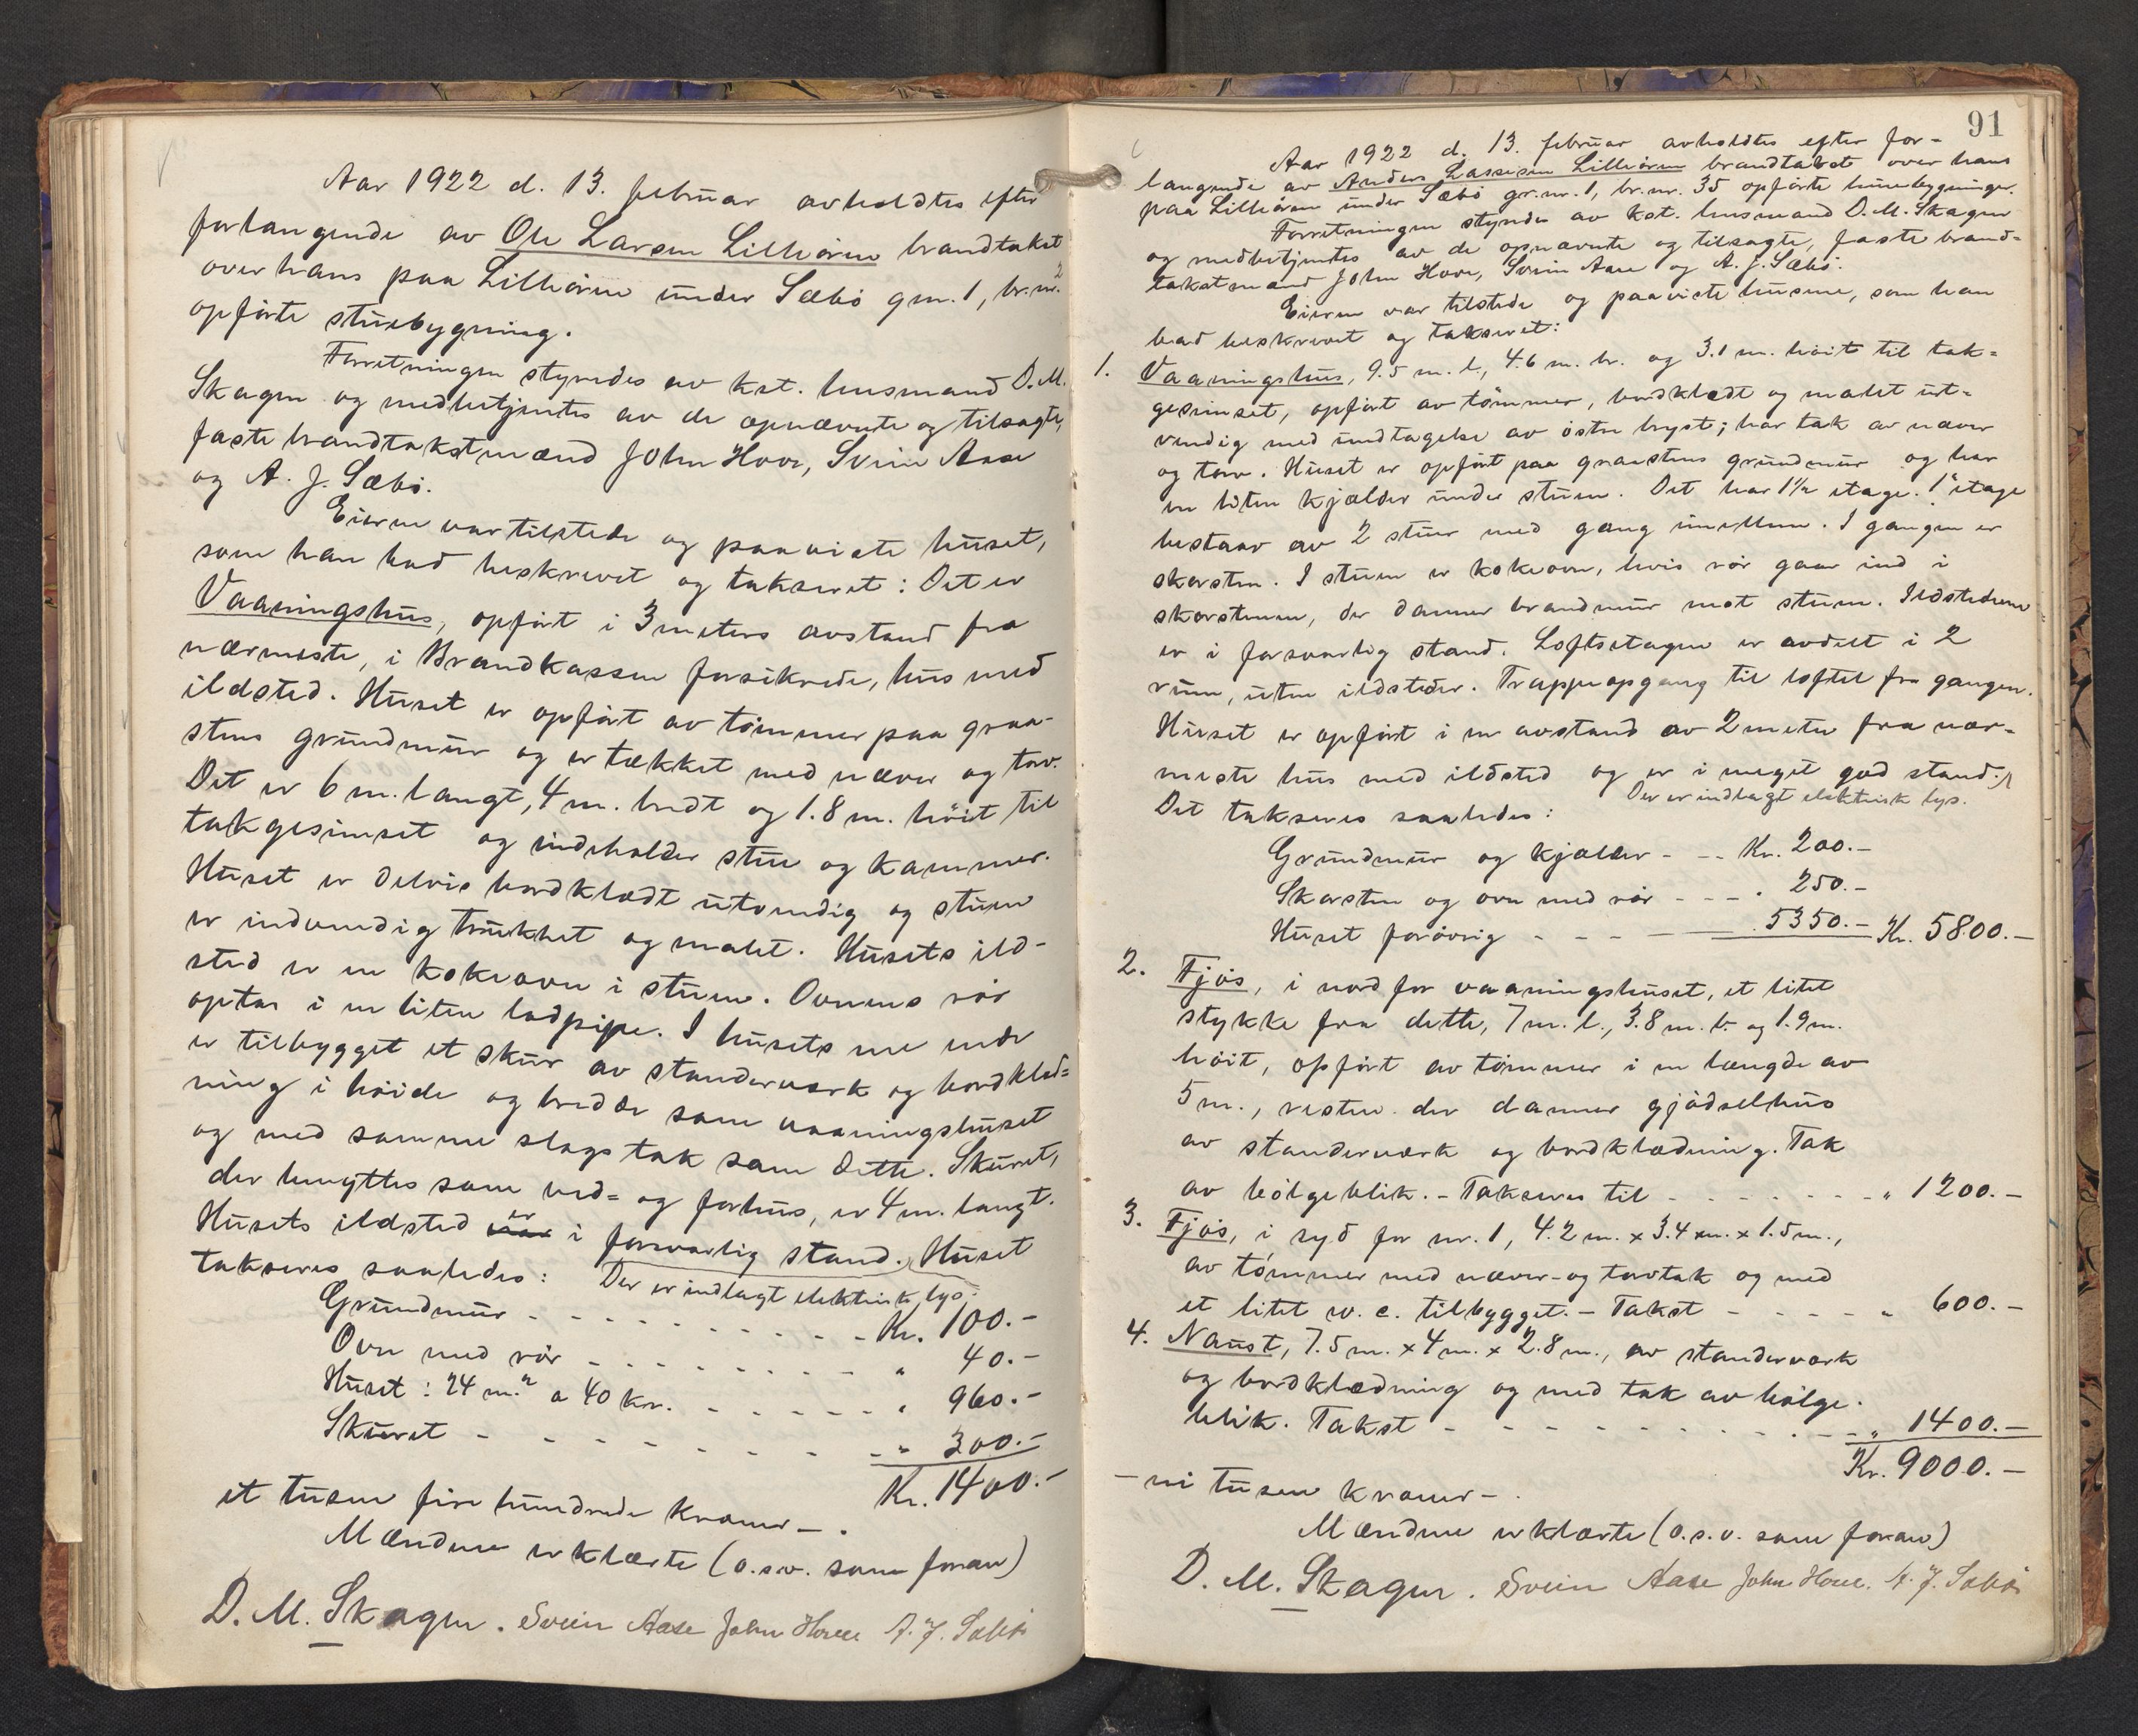 Aar 1922 d. 13. februar avholdtes efter
forlangende av Ole Larsen Lilleören brandtakst
over hans paa Lilleören under Sæbö gnr. 1, br.nr. 2
opförte stuebygning.
Forretningen styredes av kst. lensmand D. M.
Skagen og medbetjentes av de opnævnte og tilsagte,
faste brandtakstmænd John Hove, Svein Aase
og A. J. Sæbö.
Eieren var tilstede og paaviste huset,
som han bad beskrevet og takseret: Det er
Vaaningshus, opfört i 3 meters avstand fra
nærmeste, i Brandkassen forsikrede, hus med
ildsted. Huset er opfört av tömmer paa graa-
stens grundmur og er tækket med næver og torv.
Det er 6 m. langt, 4 m. bredt og 1.8 m. höit til
takgesimset og indeholder stue og kammer.
Huset er delvis bordklædt utvendig og stuen
er indvendig trukket og malet. Husets ild-
sted er en kokeovn i stuen. Ovnens rör
optas i en liten ladpipe. I husets ene ende
er tilbygget et skur av standerværk og bordklæd-
ning i höide og bredde som vaaningshuset
og med samme slags tak som dette. Skuret,
der benyttes som ved- og forhus, er 4 m. langt.
Husets ildsted er i forsvarlig stand. Huset
takseres saaledes: Der er indlagt elektrisk lys.
Grundmur - - - - - - - - - Kr. 100.-
Ovn med rör - - - - - - - - " 40.-
Huset: 24 m.² a 40 kr. - - - - - " 960.-
Skuret - - - - - - - - " 300.-
Kr. 1400.-
et tusen fire hundrede kroner - .
Mændene erklærte (o.s.v. som foran)
D. M. Skagen. Svein Aase John Hove A. J. Sæbö
91
Aar 1922 d. 13. februar avholdtes efter for-
langende av Anders Lassesen Lilleören brandtakst over hans
paa Lilleören under Sæbö gr.nr. 1, br.nr. 35 opförte husebygninger.
Forretningen styredes av kst. lensmand D. M. Skagen
og medbetjentes av de opnævnte og tilsagte, faste brand-
takstmænd John Hove, Svein Aase og A. J. Sæbö.
Eieren var tilstede og paaviste husene, som han
bad beskrevet og takseret:
1. Vaaningshus, 9.5 m. l., 4.6 m. br. og 3.1 m. höit til tak-
gesimset, opfört av tömmer, bordklædt og malet ut-
vendig med undtagelse av östre bryst; har tak av næver
og torv. Huset er opfört paa graastens grundmur og har
en liten kjælder under stuen. Det har 1½ etage. 1' etage
bestaar av 2 stuer med gang imellem. I gangen er
skorsten. I stuen er kokeovn, hvis rör gaar ind i
skorstenen, der danner brandmur mot stuen. Ildstederne
er i forsvarlig stand. Loftsetagen er avdelt i 2
rum, uten ildsteder. Trappeopgang til loftet fra gangen.
Huset er opfört i en avstand av 2 meter fra nær-
meste hus med ildsted og er i meget god stand.
Der er indlagt elektrisk lys.
Det takseres saaledes:
Grundmur og kjælder - - - Kr. 200.-
Skorsten og ovn med rör - - - " 250.-
Huset forövrig - - - - - 5350.- Kr. 5800.-
2. Fjös, i nord for vaaningshuset, et litet
stykke fra dette, 7 m. l., 3.8 m. b. og 1.9 m.
höit, opfört av tömmer i en længde av
5 m., resten der danner gjödselhus
av standerværk og bordklædning. Tak
av bölgeblik. - Takseres til - - - - - - - " 1200.-
3. Fjös, i syd for nr. 1, 4.2 m. x 3.4 m. x 1.5 m.,
av tömmer med næver- og torvtak og med
et litet w. c. tilbygget. - Takst - - - - - " 600.-
4. Naust, 7.5 m. x 4 m. x 2.8 m., av standerværk
og bordklædning og med tak av bölge-
blik. Takst - - - - - - - - - - - " 1400.-
Kr. 9000.-
- ni tusen kroner - .
Mændene erklærte (o.s.v. som foran)
D. M. Skagen. Svein Aase John Hove. A. J. Sæbö